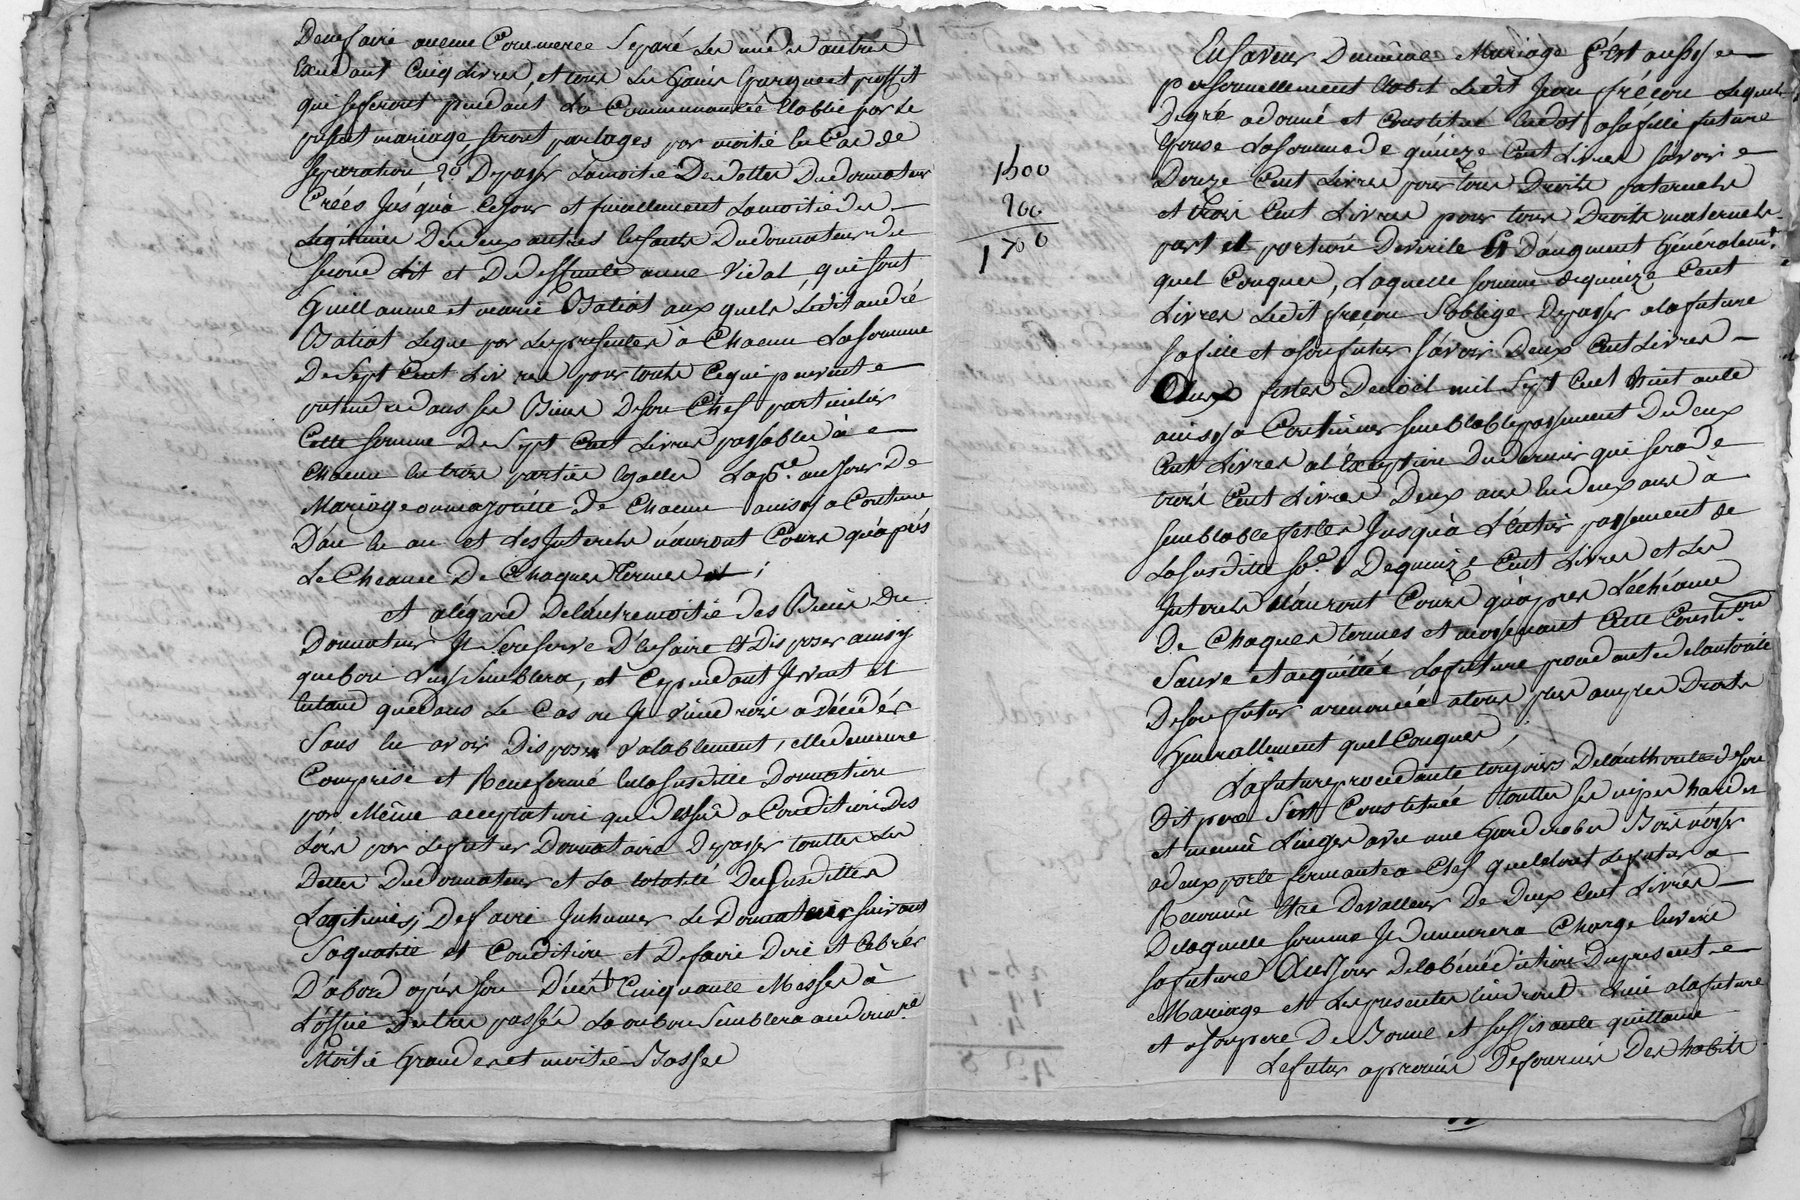 Denefaire aucun Commerce Separé les uns des autres
Excedant Cinq Livres, et tous les Gains Epargne et proffit
qui se feront pendant La Communauté Etablie par Le
present mariage, seront partagés par moitié En Cas de
Separation, 2º De passer La moitié Des dettes Du donnateur
Créés Jusqua Ce Jour et finallement La moitié des
Legitimes Des deux autres Enfants Du donnateur du
second Lit et De deffunte anne Vidal, qui sont
Guillaume et marie Batiat aux quels Ledit andré
Batiat Legue par Les presentes à Chacun La somme
De Sept Cent Livres pour tout Ce qui peuvent
pretendre dans ses Biens De son Chef particulier
Cette somme De Sept Cent Livres passables à
Chacun En trois parties Egalles La pre. au Jour De
Mariage ou majorité De Chacun ainsy a Continuer
D'an En an et Les Interets n'auront Cours qu'apres
Le Cheance De Chaques termes ;
et a légard De Lautre moitié des Biens Du
Donnateur Il Se reserve D'En faire Et Disposer ainsy
que bon Luy Semblera, et Cependant Il veut et
Entend que dans Le Cas ou Il viendroit a Décéder
Sans En avoir Disposé valablement, elle demeure
Comprise et Renfermé En la Susditte Donnation
par Même acceptation que dessus a Condition Des
Lors par Le futur Donnataire De passer touttes Les
Dettes Du donnateur et La totalité Des Susdittes
Legitimes, De faire Inhumer Le Donnateur suivant
Sa qualité et Condition et De faire Dire et Celebrer
D'abord après son Décès Cinquante Messes à
L'Offrire D'Etre passés La ou bon Semblera audonat.re
Moitié Grandes et moitié Basses
1500
200
1700
En faveur Du même Mariage C'est aussy
personnellement Etabli Ledit Jean frécon Lequel
De gré a donné et Constitue En dot a sa fille future
Epouse La somme De quinze Cent Livres savoir
Douze Cent Livres pour tous Droits paternels
et trois Cent Livres pour tous Droits maternels
part et portion De virile Et D'augment Généralemt.
quel Conques, Laquelle somme De quinze Cent
Livres Ledit frecon S'oblige De passer a la future
Sa fille et a son futur Sávoir Deux Cent Livres
Aux fêtes De noël mil Sept Cent vint
ainsy a Continuer semblable passement De deux
Cent Livres a L'éxception Du dernier qui sera De
trois Cent Livres Deux ans En deux ans à
semblable festes Jusqu'à L'entier passement de
La Susditte Se. De quinze Cent Livres et Les
Interets n'auront Cours qu'après L'échéance
De Chaques termes et moyenant Cette Constion.
Sauve et acquittée La future procedante De Lautorité
De son futur a renoncée a tous plus amples Droits
Generallement quel Conques ;
La future procedante toujours De L'authorité De son
Dit pere S'est Constituée touttes ses nipes hardes
et menu Linges avec une Garde robes Bois
a deux porte fermantes a Clef quel dont Le futur a
Reconnu Etre De valleur De Deux Cent Livres
De laquelle somme Il demeurera Charge Envers
sa future Au Jour De la bénédiction Du present
Mariage et Les presentes tiendront Lieu a la future
et a son pere De Bonne et suffisante quittance
Le futur a promis De fournir Des habits